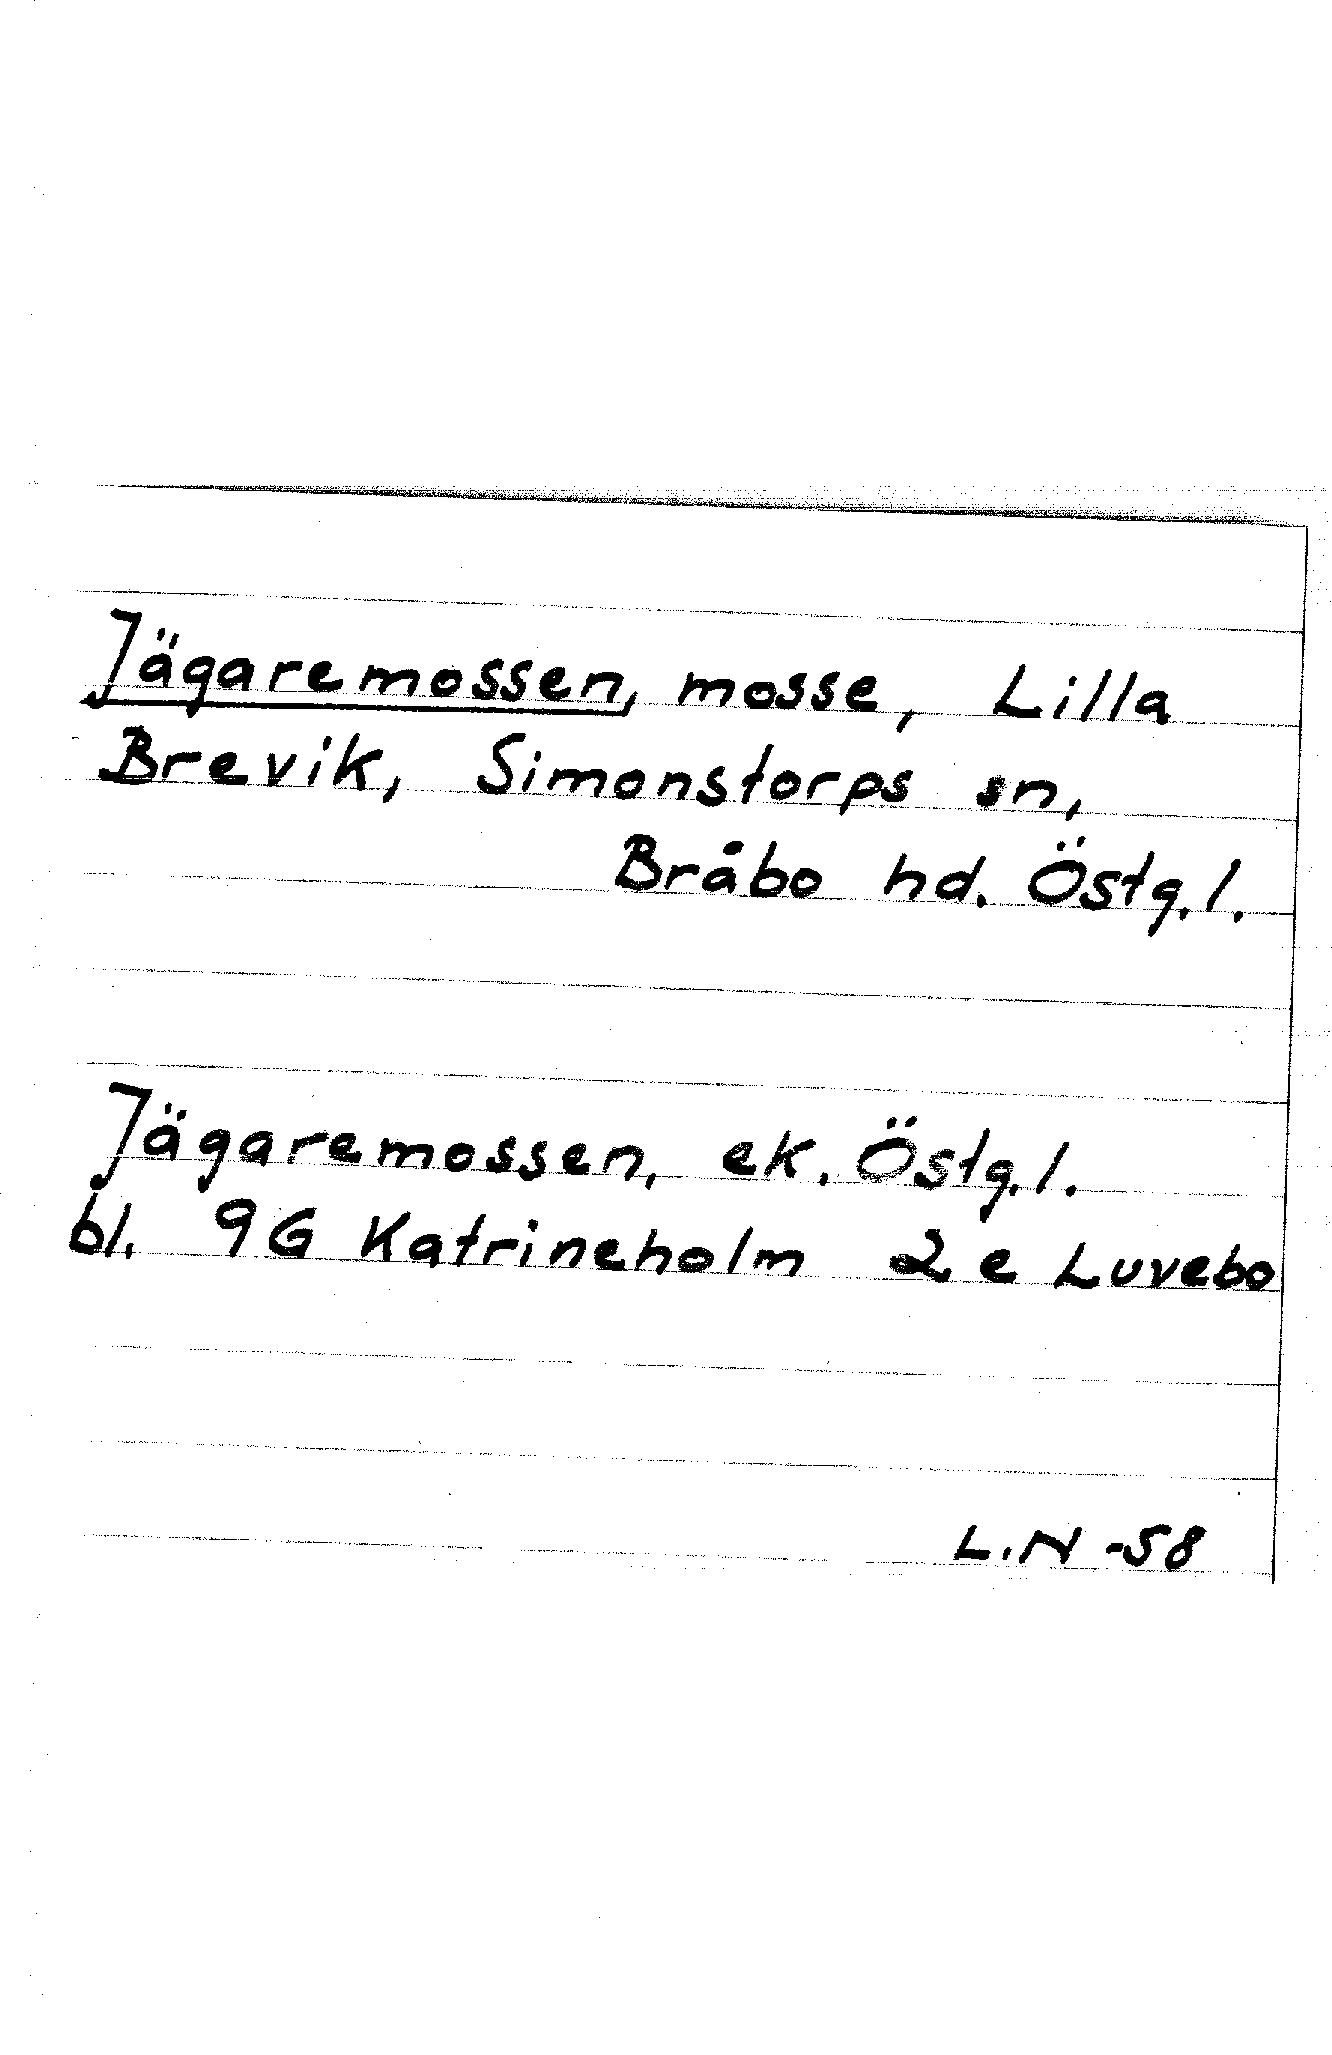 Jägaremossen, mosse, Lilla
Brevik, Simonstorps sn,
Bråbo hd. Östg.l.
Jägaremossen, ek. Östg.l.
bl. 9G Katrineholm 2e Luvebo
L.N -58